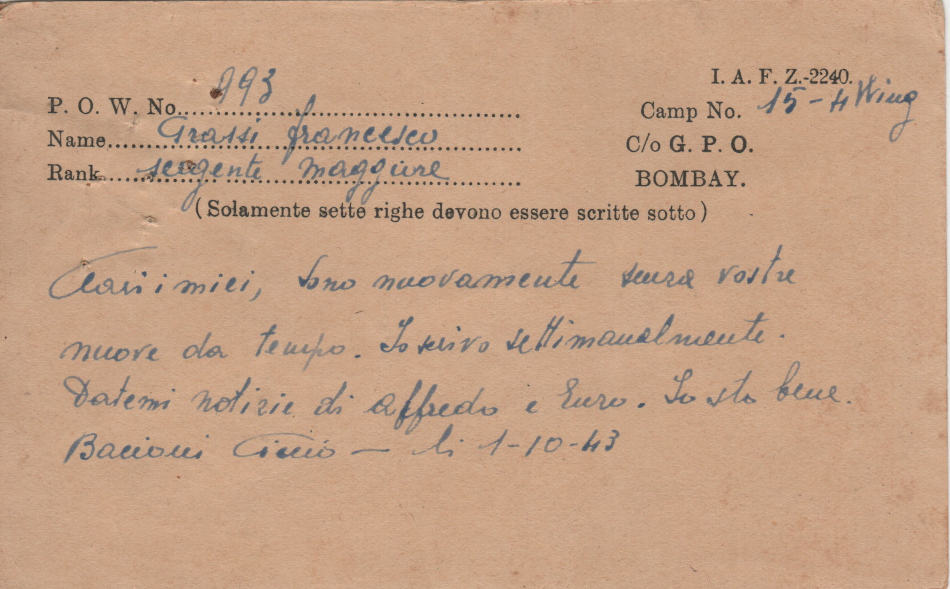 I. A. F. Z.-2240.
P. O. W. No. 993
Camp No. 15-4 Wing
Name. Grassi francesco
C/o G. P. O.
Rank. sergente maggiore
BOMBAY.
(Solamente sette righe devono essere scritte sotto)
Cari miei, sono nuovamente senza vostre
nuove da tempo. Io scrivo settimanalmente.
Datemi notizie di Affredo e Euro. Io sto bene.
Bacioni Ciccio — li 1-10-43